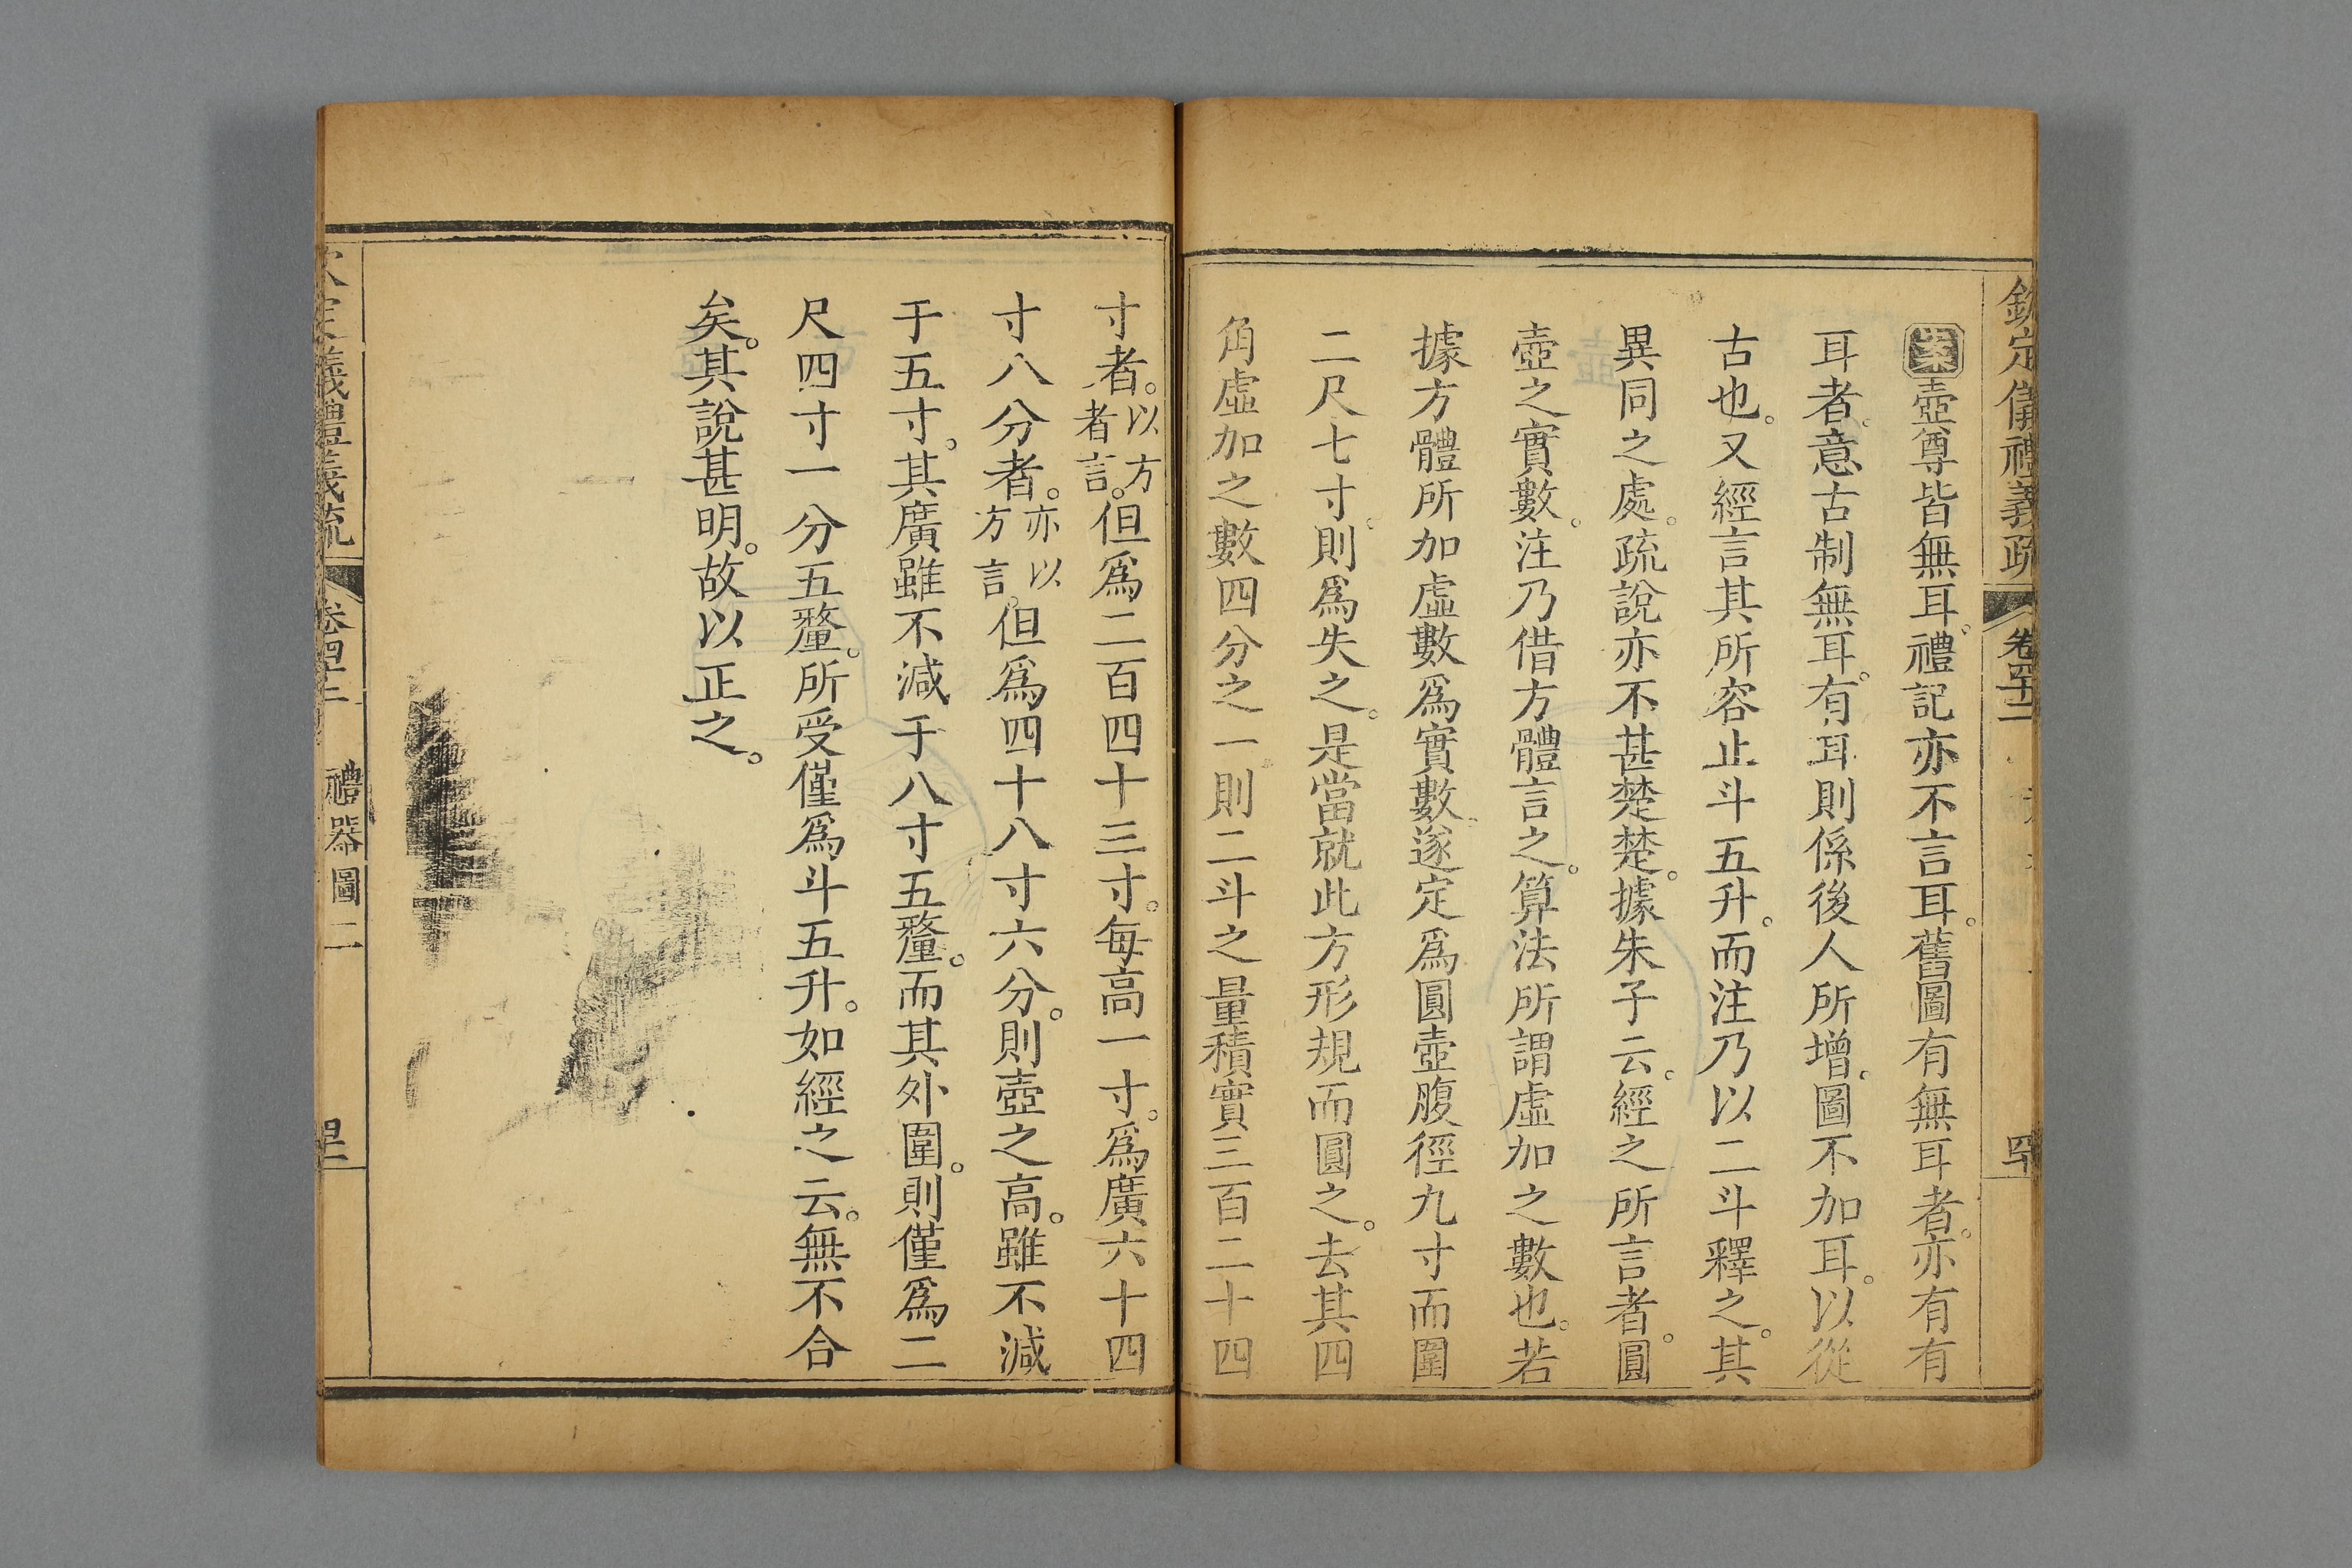 欽定儀禮義疏 卷四十二
案壺尊皆無耳。禮記亦不言耳。舊圖有無耳者。亦有有
耳者。意古制無耳。有耳則係後人所增。圖不加耳。以從
古也。又經言其所容止斗五升。而注乃以二斗釋之。其
異同之處。疏說亦不甚楚楚。據朱子云。經之所言者。圓
壺之實數。注乃借方體言之。算法所謂虛加之數也。若
據方體所加虛數爲實數。遂定爲圓壺腹徑九寸而圍
二尺七寸。則爲失之。是當就此方形規而圓之。去其四
角虛加之數四分之一。則二斗之量積實三百二十四
寸者。以方者言。但爲二百四十三寸。每高一寸。爲廣六十四
寸八分者。亦以方言。但爲四十八寸六分。則壺之高。雖不減
于五寸。其廣雖不減于八寸五釐。而其外圍。則僅爲二
尺四寸一分五釐。所受僅爲斗五升。如經之云。無不合
矣。其說甚明。故以正之。
儀禮義疏 卷四十二 禮器圖二